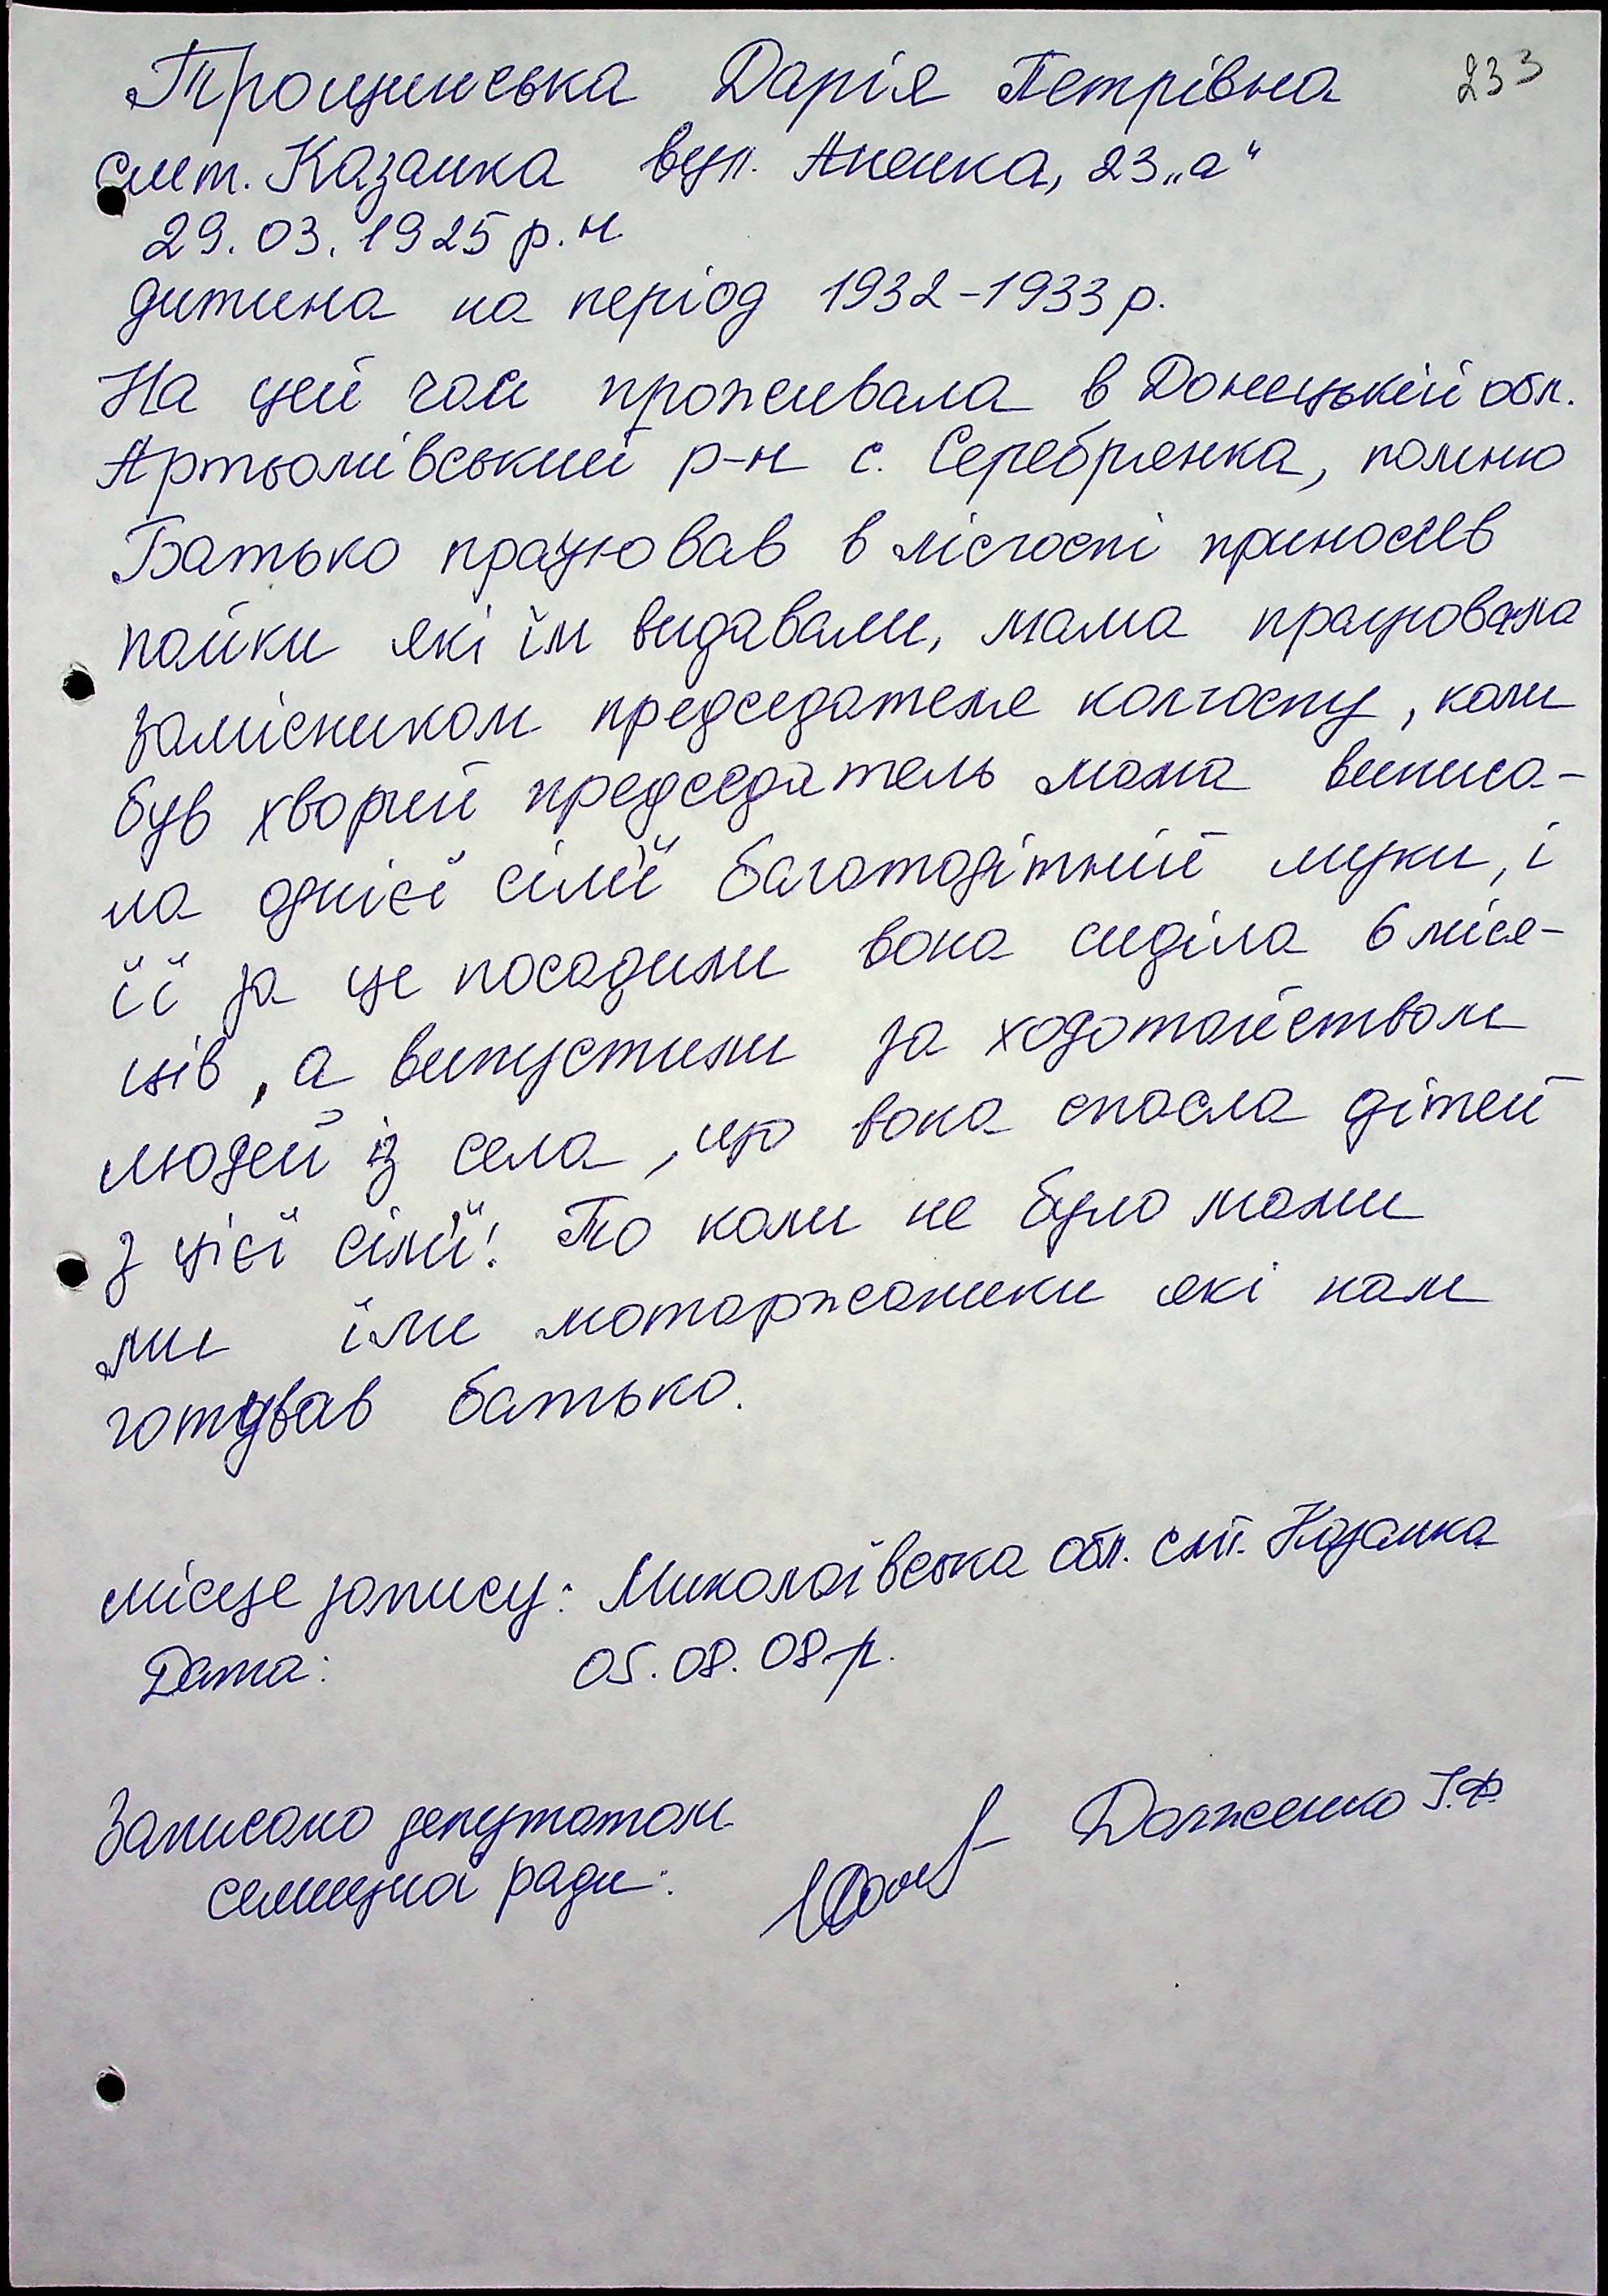 Трощинська Дарія Петрівна 233
смт. Казанка вул. Апенка, 23 „а“
29.03.1925 р.н
дитина на період 1932-1933 р.
На цей час проживала в Донецькій обл.
Артьомівський р-н с. Серебрянка, помню
Батько працював в лісгоспі приносив
пайки які їм видавали, мама працювала
замісником председателя колгоспу, коли
був хворий председатель мама виписа-
ла однієї сім'ї багатодітній муки, і
її за це посадили вона сиділа 6 міся-
ців, а випустили за ходотайством
людей із села, що вона спасла дітей
з цієї сім'ї! То коли не було мами
ми їли моторжаники які нам
готував батько.
місце запису: Миколаївська обл. смт. Казанка
Дата: 05.08.08 р.
Записано депутатом
селищна ради: Долженко І.Ф.